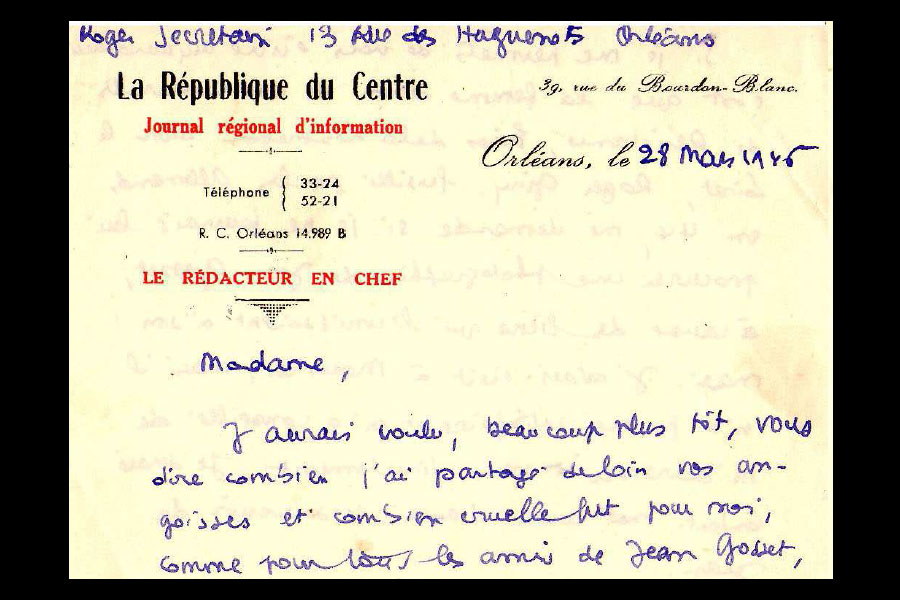 Roger Secretain 13 Rue des Huguenots Orléans
La République du Centre
39, rue du Bourdon-Blanc.
Journal régional d'information
Orléans, le 28 Mars 1945
Téléphone { 33-24
52-21
R. C. Orléans 14.989 B
LE RÉDACTEUR EN CHEF
Madame,
J'aurais voulu, beaucoup plus tôt, vous
dire combien j'ai partagé de loin vos an-
goisses et combien cruelle fut pour moi,
comme pour tous les amis de Jean Gosset,